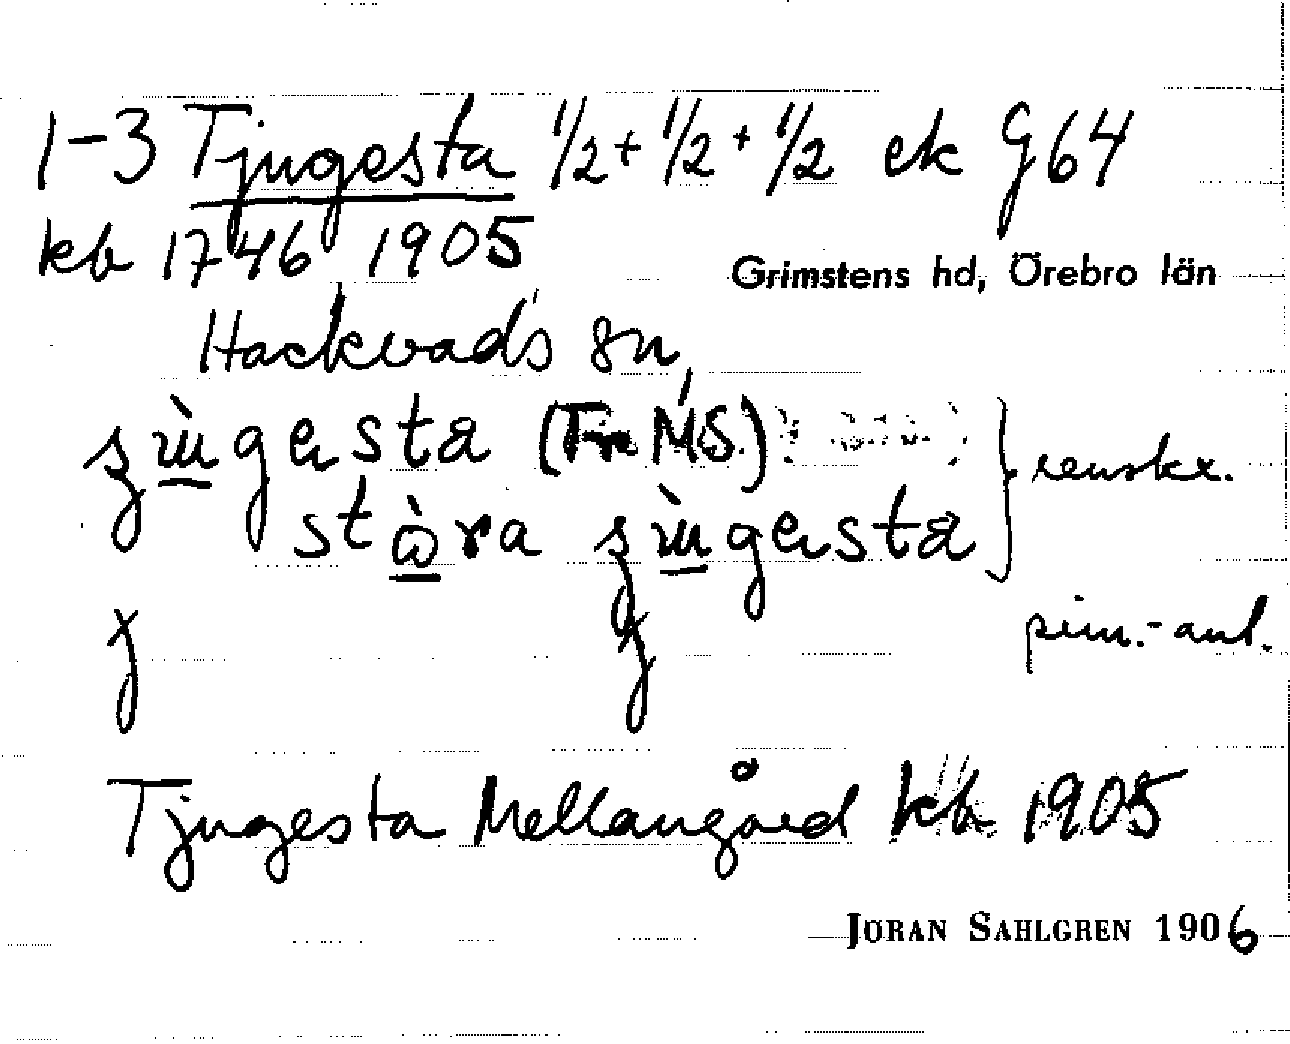 1-3 Tjugesta 1/2 + 1/2 + 1/2 ek G64
kb 1746 1905
Grimstens hd, Örebro län
Hackvads sn
(Fr MS.)
renskr.
prim.-ant.
Tjugesta Mellangård kb 1905
JÖRAN SAHLGREN 1906